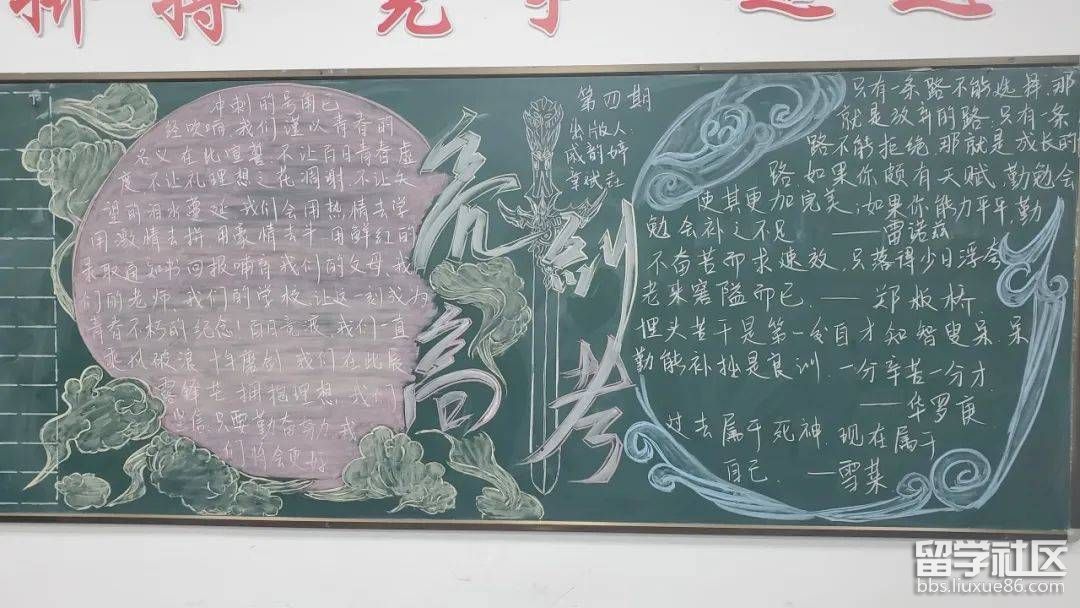 拼搏 竞争
冲刺的号角已
经吹响,我们谨以青春的
名义在此宣誓,不让百日青春虚
度,不让孔理想之花凋谢,不让失
望的泪水蔓延,我们会用热情去学
用激情去拼,用豪情去斗,用鲜红的
录取通知书回报哺育我们的父母、我
们的老师、我们的学校,让这一刻成为
青春不朽的纪念!百日竞渡,我们一直
乘风破浪,十年磨剑,我们在此辰
露锋芒,拥抱理想,我们
坚信,只要勤奋努力,我
们将会更好
亮剑
高考
第四期
出版人:
成韵婷
只有一条路不能选择,那
就是放弃的路,只有一条
路不能拒绝,那就是成长的
路,如果你颇有天赋,勤勉会
使其更加完美;如果你能力平平,勤
勉会补之不足 ——雷诺兹
不奋苦而求速效,只落得少日浮夸
老来窘隘而已。——郑板桥
埋头苦干是第一,发白才知智叟呆,呆
勤能补拙是良训,一分辛苦一分才。
——华罗庚
过去属于死神,现在属于
自己。——雪莱
留学社区
bbs.liuxue86.com